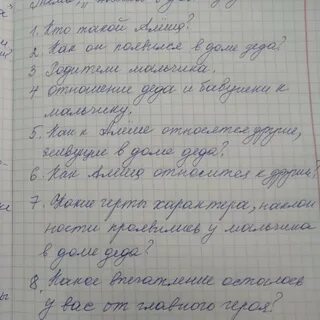 1. Кто такой Алёша?
2. Как он появился в доме деда?
3 Родители мальчика.
4 отношение деда и бабушки к
мальчику.
5. Как к Алёше относятся другие,
живущие в доме деда?
6. Как Алёша относится к другим?
7. Какие черты характера, наклон
ности проявились у мальчика
в доме деда?
8. Какое впечатление осталось
у вас от главного героя?